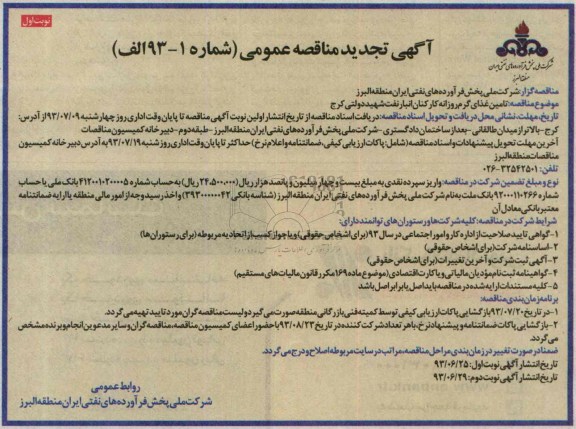 نوبت اول
شرکت ملی پخش فرآورده‌های نفتی ایران
منطقه البرز
آگهی تجدید مناقصه عمومی (شماره ۱-۹۳الف)
مناقصه گزار: شرکت ملی پخش فرآورده های نفتی ایران منطقه البرز
موضوع مناقصه: تامین غذای گرم روزانه کارکنان انبار نفت شهید دولتی کرج
تاریخ، مهلت، نشانی محل دریافت و تحویل اسناد مناقصه: دریافت اسناد مناقصه از تاریخ انتشار اولین نوبت آگهی مناقصه تا پایان وقت اداری روز چهارشنبه ۹۳/۰۷/۰۹ از آدرس:
کرج-بالاتر از میدان طالقانی -بعد از ساختمان دادگستری -شرکت ملی پخش فرآورده های نفتی ایران منطقه البرز-طبقه دوم-دبیرخانه کمیسیون مناقصات
آخرین مهلت تحویل پیشنهادات و اسناد مناقصه (شامل: پاکات ارزیابی کیفی، ضمانتنامه و اعلام نرخ) حداکثر تا پایان وقت اداری روز شنبه ۹۳/۰۷/۱۹ به آدرس دبیرخانه کمیسیون
مناقصات منطقه البرز
تلفن: ۳۲۵۴۲۵۰۱-۰۲۶
نوع و مبلغ تضمین شرکت در مناقصه: واریز سپرده نقدی به مبلغ بیست و چهار میلیون و پانصد هزار ریال (۲۴،۵۰۰،۰۰۰ ریال) به حساب شماره ۴۱۲۰۰۱۰۲۰۰۰۵ بانک ملی یا حساب
شماره ۹۲۰۰۰۱۱۰۲۶۶ بانک ملت به نام شرکت ملی پخش فرآورده های نفتی ایران منطقه البرز (شناسه بانکی ۳۹۳۰۰۰۰۰۰۴۲) و اخذ رسید وجه از امور مالی منطقه یا ارایه ضمانتنامه
معتبر بانکی معادل آن
شرایط شرکت در مناقصه: کلیه شرکت ها و رستوران های توانمند دارای:
۱-گواهی تایید صلاحیت از اداره کار و امور اجتماعی در سال ۹۳ (برای اشخاص حقوقی) و یا جواز کسب از اتحادیه مربوطه (برای رستوران ها)
۲-اساسنامه شرکت (برای اشخاص حقوقی)
۳-آگهی ثبت شرکت و آخرین تغییرات (برای اشخاص حقوقی)
۴-گواهینامه ثبت نام مؤدیان مالیاتی و یا کارت اقتصادی (موضوع ماده ۱۶۹ مکرر قانون مالیات های مستقیم)
۵-کلیه مستندات ارایه شده در مناقصه باید اصل یا برابر اصل باشد
برنامه زمان بندی مناقصه:
۱-در تاریخ ۹۳/۰۷/۲۰ بازگشایی پاکات ارزیابی کیفی توسط کمیته فنی بازرگانی منطقه صورت می گیرد و لیست مناقصه گران مورد تایید تهیه می گردد.
۲-بازگشایی پاکات ضمانتنامه و پیشنهاد نرخ، با هر تعداد شرکت کننده در تاریخ ۹۳/۰۸/۲۳ با حضور اعضای کمیسیون مناقصه، مناقصه گران و سایر مدعوین انجام و برنده مشخص
می گردد.
ضمنا در صورت تغییر در زمان بندی مراحل مناقصه، مراتب در سایت مربوطه اصلاح و درج می گردد.
تاریخ انتشار آگهی نوبت اول: ۹۳/۰۶/۲۵
تاریخ انتشار آگهی نوبت دوم: ۹۳/۰۶/۲۹
روابط عمومی
شرکت ملی پخش فرآورده های نفتی ایران منطقه البرز